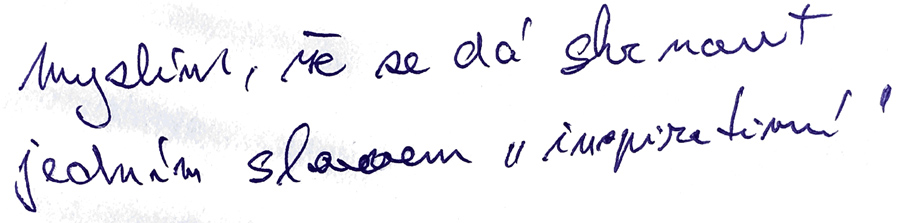 myslím, že se dá shrnout
jedním slovem "inspirativní"